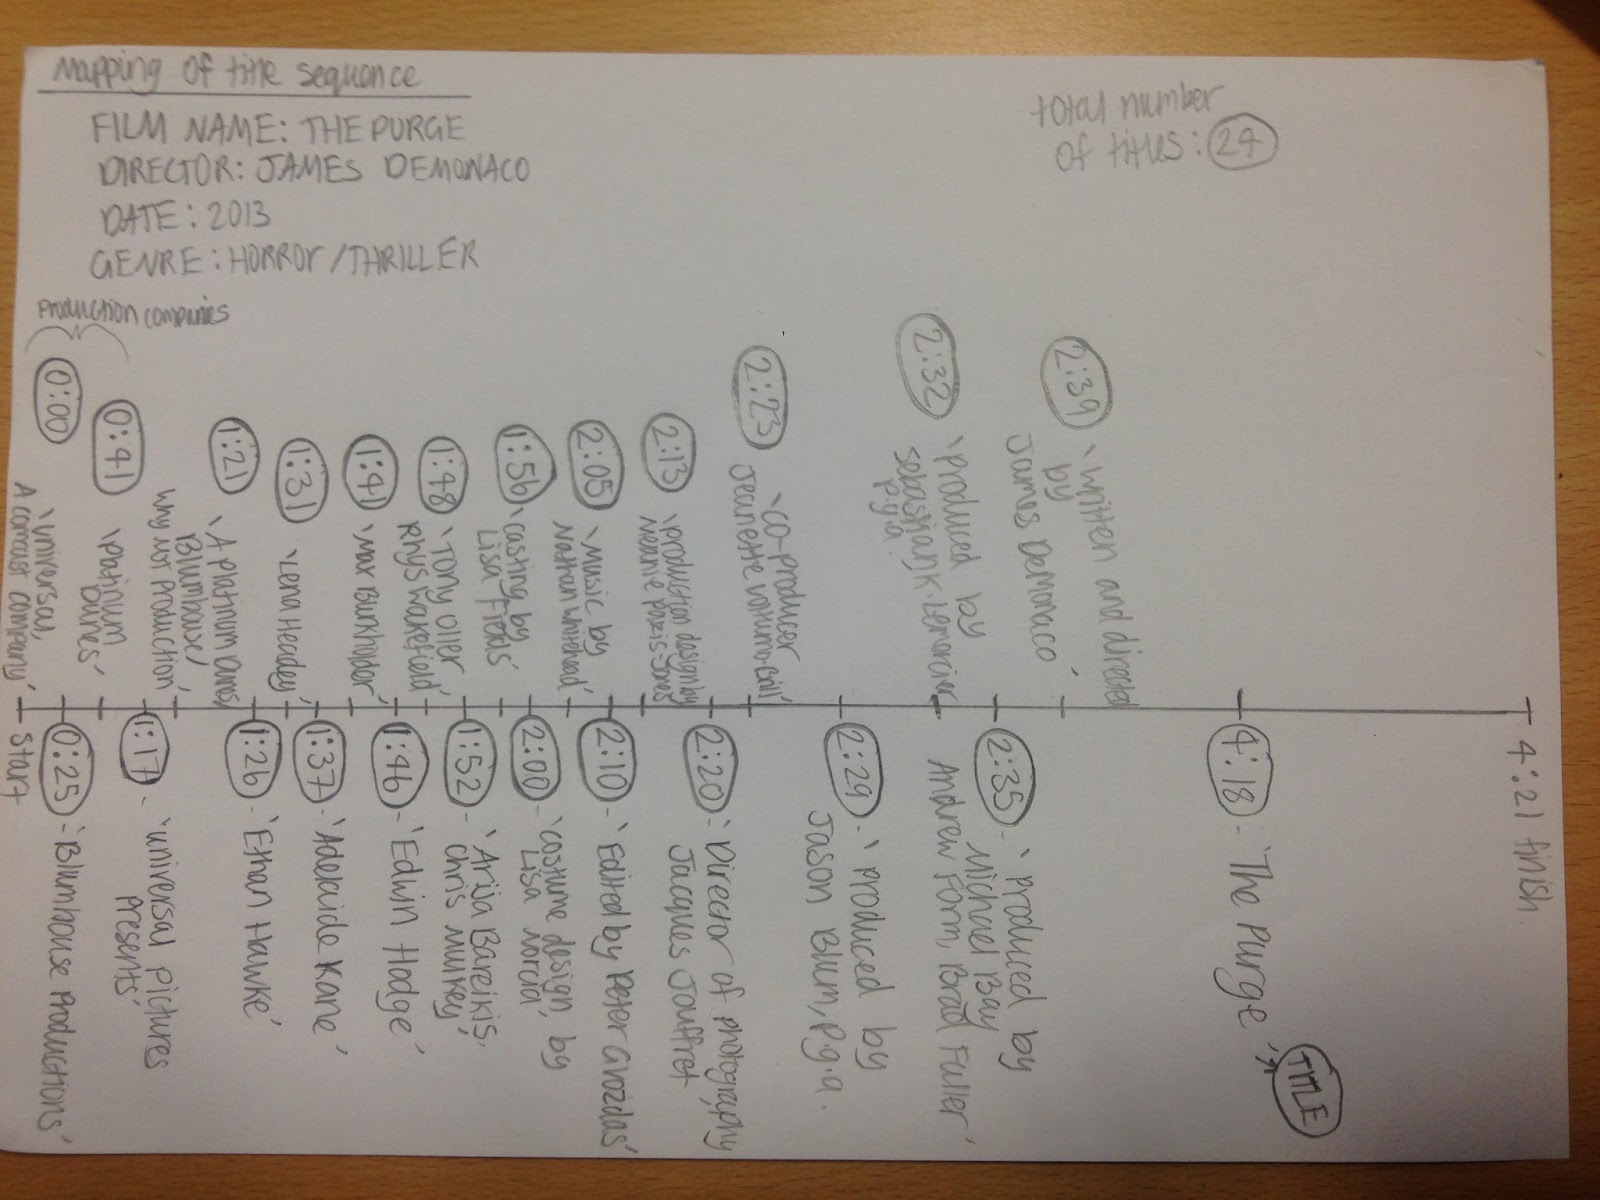 Mapping of title sequence
FILM NAME: THE PURGE
DIRECTOR: JAMES DEMONACO
DATE: 2013
GENRE: HORROR/THRILLER
total number
of titles: 24
production companies
0:00
'universal,
A comcast company'
0:41
'platinum
Dunes'
why not production'
1:21
'A platinum Dunes,
Blumhouse/
1:31
'Lena Headey'
1:41
'Max Burkholder'
1:48
'Tony Oller,
Rhys Wakefield'
1:56
'casting by
Lisa Fields'
2:05
'Music by
Nathan Whitehead'
2:13
'production design by
Melanie Paizis-Jones'
2:23
'co-producer
Jeanette Volturno-Brill'
2:32
'produced by
Sebastian K. Lemercier
p.g.a.
2:39
'written and directed
by
James DeMonaco'
start
0:25 - 'Blumhouse Productions'
1:17 - 'universal pictures
presents'
1:26 - 'Ethan Hawke'
1:37 - 'Adelaide Kane'
1:46 - 'Edwin Hodge'
1:52 - 'Arija Bareikis,
Chris Mulkey'
2:00 - 'costume design, by
Lisa Norcia'
2:10 - 'Edited by Peter Gvozdas'
2:20 - 'Director of photography
Jacques Jouffret
2:29 - 'produced by
Jason Blum, p.g.a.
2:35 - 'produced by
Michael Bay
Andrew Form, Brad Fuller'
4:18 - 'The Purge'
TITLE
4:21 finish.